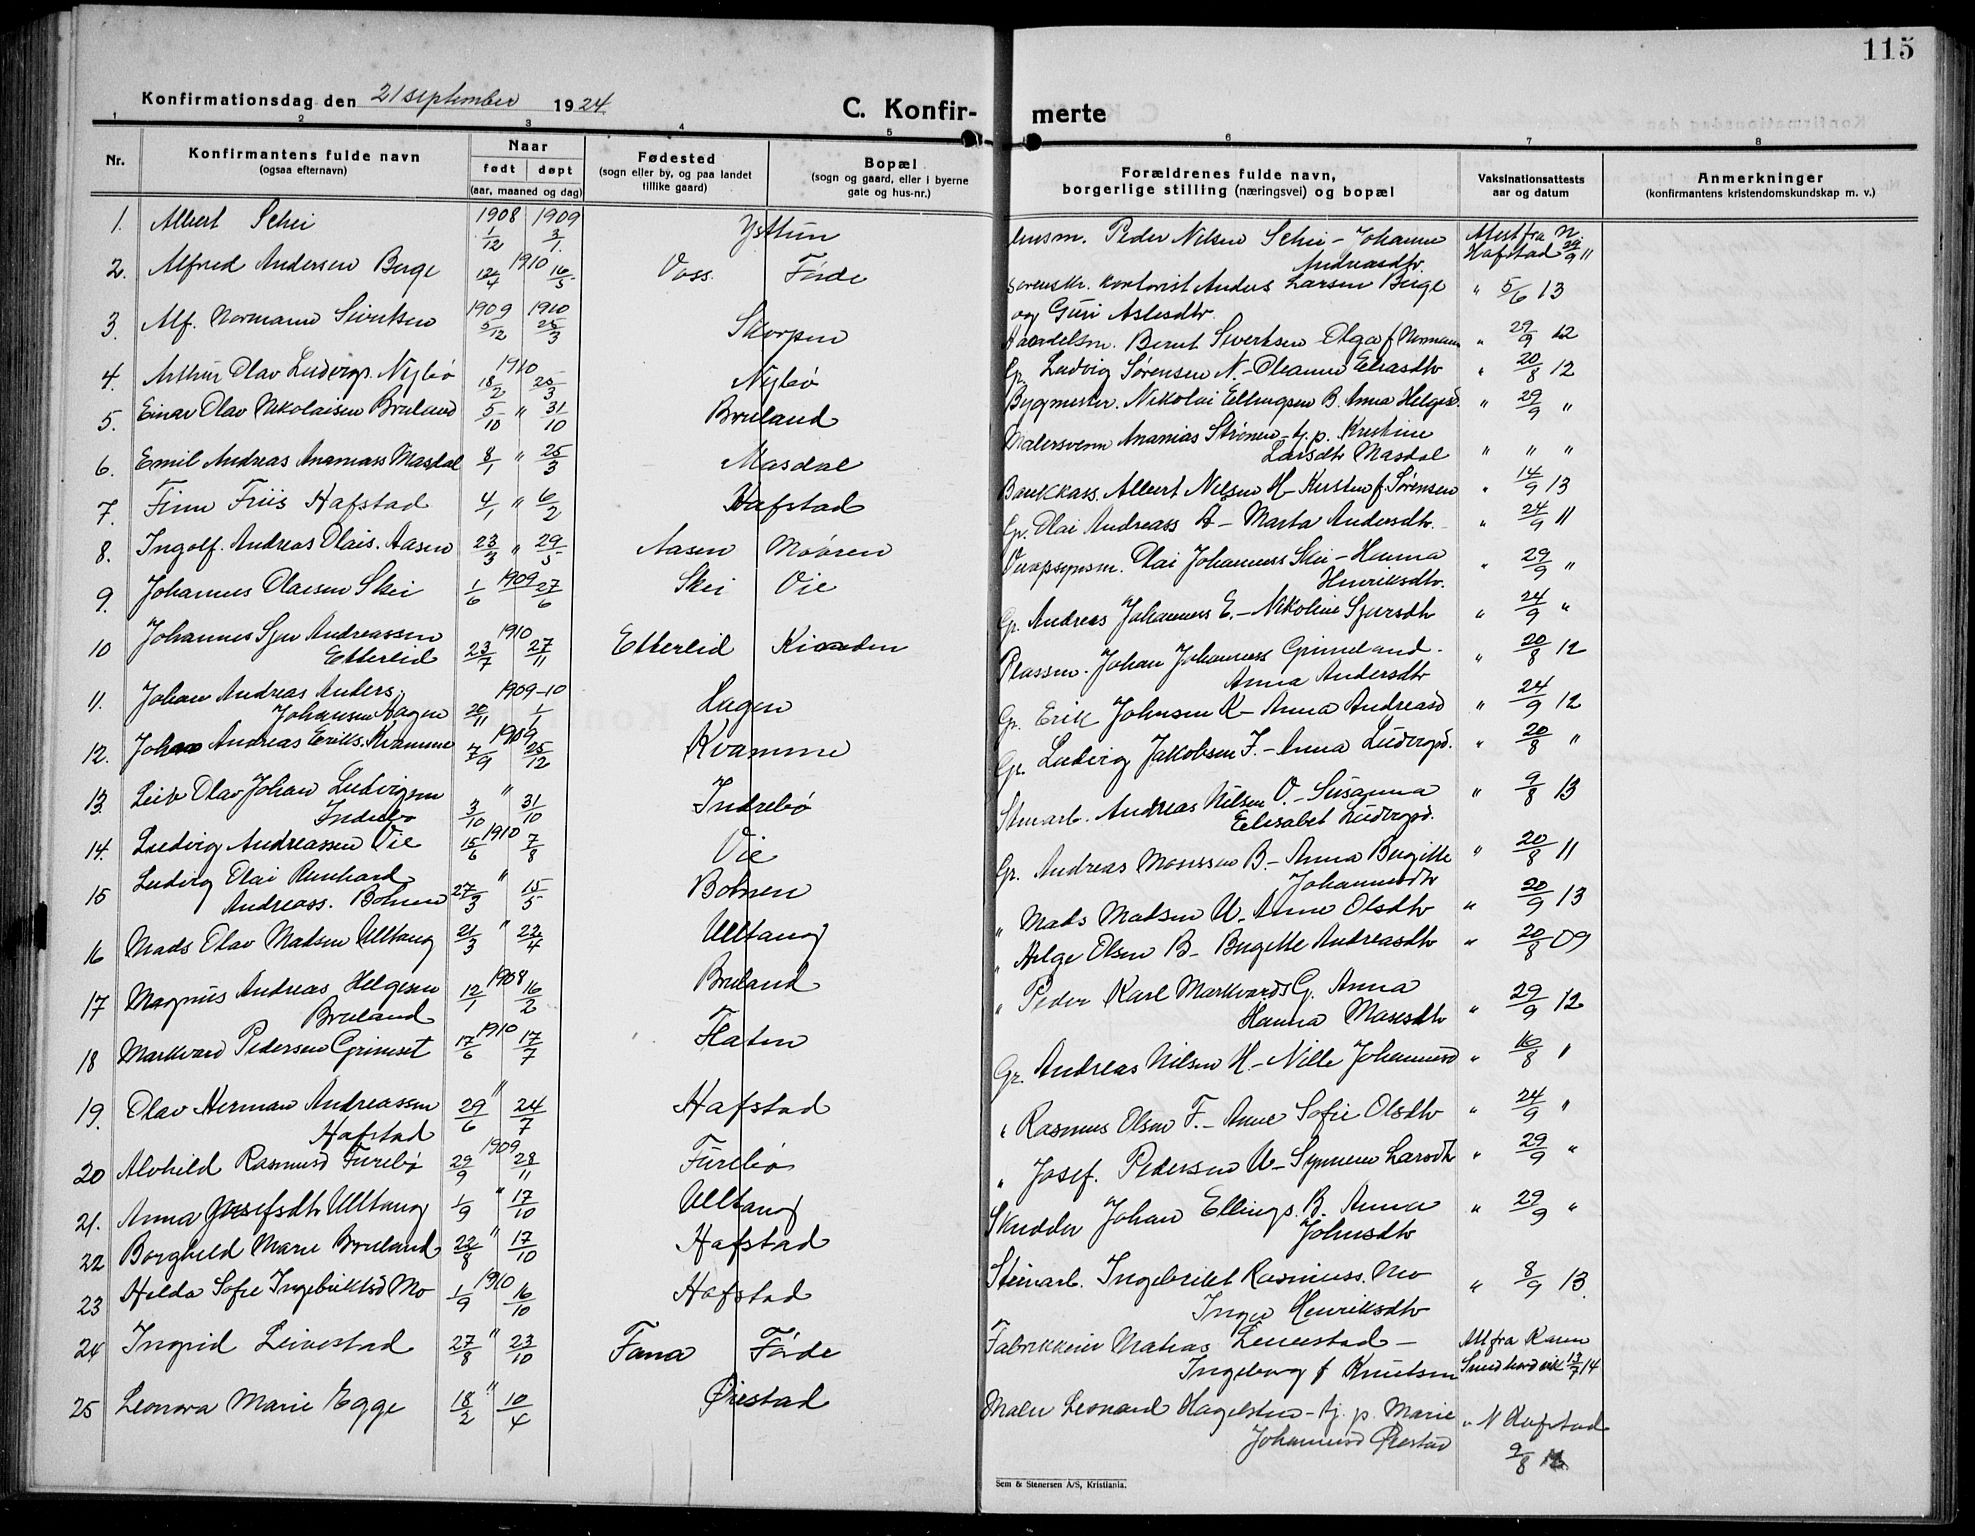 115
Konfirmationsdag den 21 september 1924
C. Konfir- merte
1 2 3 4 5 6 7 8
Nr.
Konfirmantens fulde navn
(ogsaa efternavn)
Naar
født døpt
(aar, maaned og dag)
Fødested
(sogn eller by, og paa landet
tillike gaard)
Bopæl
(sogn og gaard, eller i byerne
gate og hus-nr.)
Forældrenes fulde navn,
borgerlige stilling (næringsvei) og bopæl
Vaksinationsattests
aar og datum
Anmerkninger
(konfirmantens kristendomskundskap m. v.)
1. Albert Schei 1908 1/12 1909 3/1. Ysttun
2. Alfred Andersen Berge 1910 16/5 Voss Førde
3 Alf. Normann Sivertsen 1909 5/12 1910 25/3 Skorpen
4. Arthur Olav Ludvigs. Nybø 1910 18/2 25/3 Nybø
5. Einar Olav Nikolaisen Bruland 5/10 " 31/10 Bruland
6. Emil Andreas Ananiass Masdal 8/1 " 25/3 Masdal
7. Finn Friis Hafstad 4/1 " 6/2 Hafstad
8. Ingolf. Andreas Olais. Aasen 23/3 " 29/5 Aasen Moåren
9. Johannes Olaisen Skei 1/6 1909 27/6 Skei Vie
10 Johannes Sjur Andreassen
Etterlid 23/7 1910 27/11 Etterlid
11. Johan Andreas Anders
Johansen Hagen 20/11 1909-10 1/1 Hagen
12. Johan Andreas Eriks. Kvamme 7/9 1909 25/12 Kvamme
13. Leif Olav Johan Ludvigsen
Indrebø 3/10 " 31/10 Indrebø
14. Ludvig Andreassen Vie 15/6 1910 7/8 Vie
15 Ludvig Olai Reinhard
Andreass. Bolsen 27/3 " 15/5 Bolsen
16 Mads Olav Madsen Ulltang 21/3 " 22/4 Ulltang
17 Magnus Andreas Helgesen
Bruland 12/1 1908 16/2 Bruland
18 Markvard Pedersen Grimset 17/6 1910 17/7 Flaten
19. Olav Herman Andreassen
Hafstad 29/6 " 24/7 Hafstad
20 Alvhild Rasmusd Furebø 29/9 1909 28/11 Furebø
21. Anna Josefsdtr Ulltang 1/9 " 17/10 Ulltang
22 Borghild Marie Bruland 22/8 " 17/10 Hafstad
23 Helda Sofie Ingebriktsd Mo 1/9 1910 16/10 Hafstad
24 Ingrid Leivestad 27/8 " 23/10 Fana Førde
25 Leonora Marie Egge 18/2 " 10/4 Ørestad
Peder Nilsen Schei - Johanne
Andreasdtr. Attest fra N.
Hafstad 29/9 11
Sorenskr. kontorist Anders Larsen Berge
og Guri Aslesdtr. " 5/6 13
Bernt Sivertsen Olga f Normann " 29/9 12
Gr. Ludvig Sørensen N. - Oleanne Eliasdtr " 20/8 12
Bygmester. Nikolai Ellingsen B. Anna Helgesd. " 29/9 "
Malersvenn Ananias Strønen - tj. p. Kristine
Larsdtr Masdal " " "
Bankkass. Albert Nilsen H - Kirsten f. Sørensen " 14/9 13
Gr. Olai Andreass A - Marta Andersdtr. " 24/9 11
Olai Johanness Skei - Hanna
Henriksdtr. " 29/9 "
Gr. Andreas Johanness E. - Nikoline Sjursdtr " 24/9 "
Plassm. Johan Johanness Grimeland -
Anna Andersdtr " 20/8 12
Gr. Erik Johnsen K - Anna Andreasd " 24/9 12
Gr. Ludvig Jakobsen I. - Anna Ludvigsd. " 20/8 "
Stenarb. Andreas Nilsen V. - Susanna
Elisabet Ludvigsd. " 9/8 13
Gr. Andreas Monssen B - Anna Birgitte
Johannesdtr " 20/8 11
" Mads Madsen U - Anne Olsdtr " 20/9 13
" Helge Olsen B - Birgitte Andreasdtr " 20/8 09
" Peder Karl Markvards G. Anna
Hanna Masesdtr " 29/9 12
Gr. Andreas Nilsen H. - Nille Johannesd " 16/8 "
" Rasmus Olsen F. - Anne Sofie Olsdtr " 24/9 "
" Josef. Pedersen U - Synneve Larsdtr " 29/9 "
Skredder Johan Ellings. B. Anna
Johnsdtr " 29/9 "
Stenarb. Ingebrikt Rasmuss. Mo
Inga Henriksdtr " 8/9 13.
Fabrikkeier Matias Leivestad -
Ingeborg f Knutsen Att fra Karen
Sundhordvik 13/7 14
Maler Leonard Hagelsten - tj. p. Marie
Johannesd Ørestad " N Hafstad
9/8
Sem & Stenersen A/S, Kristiania.